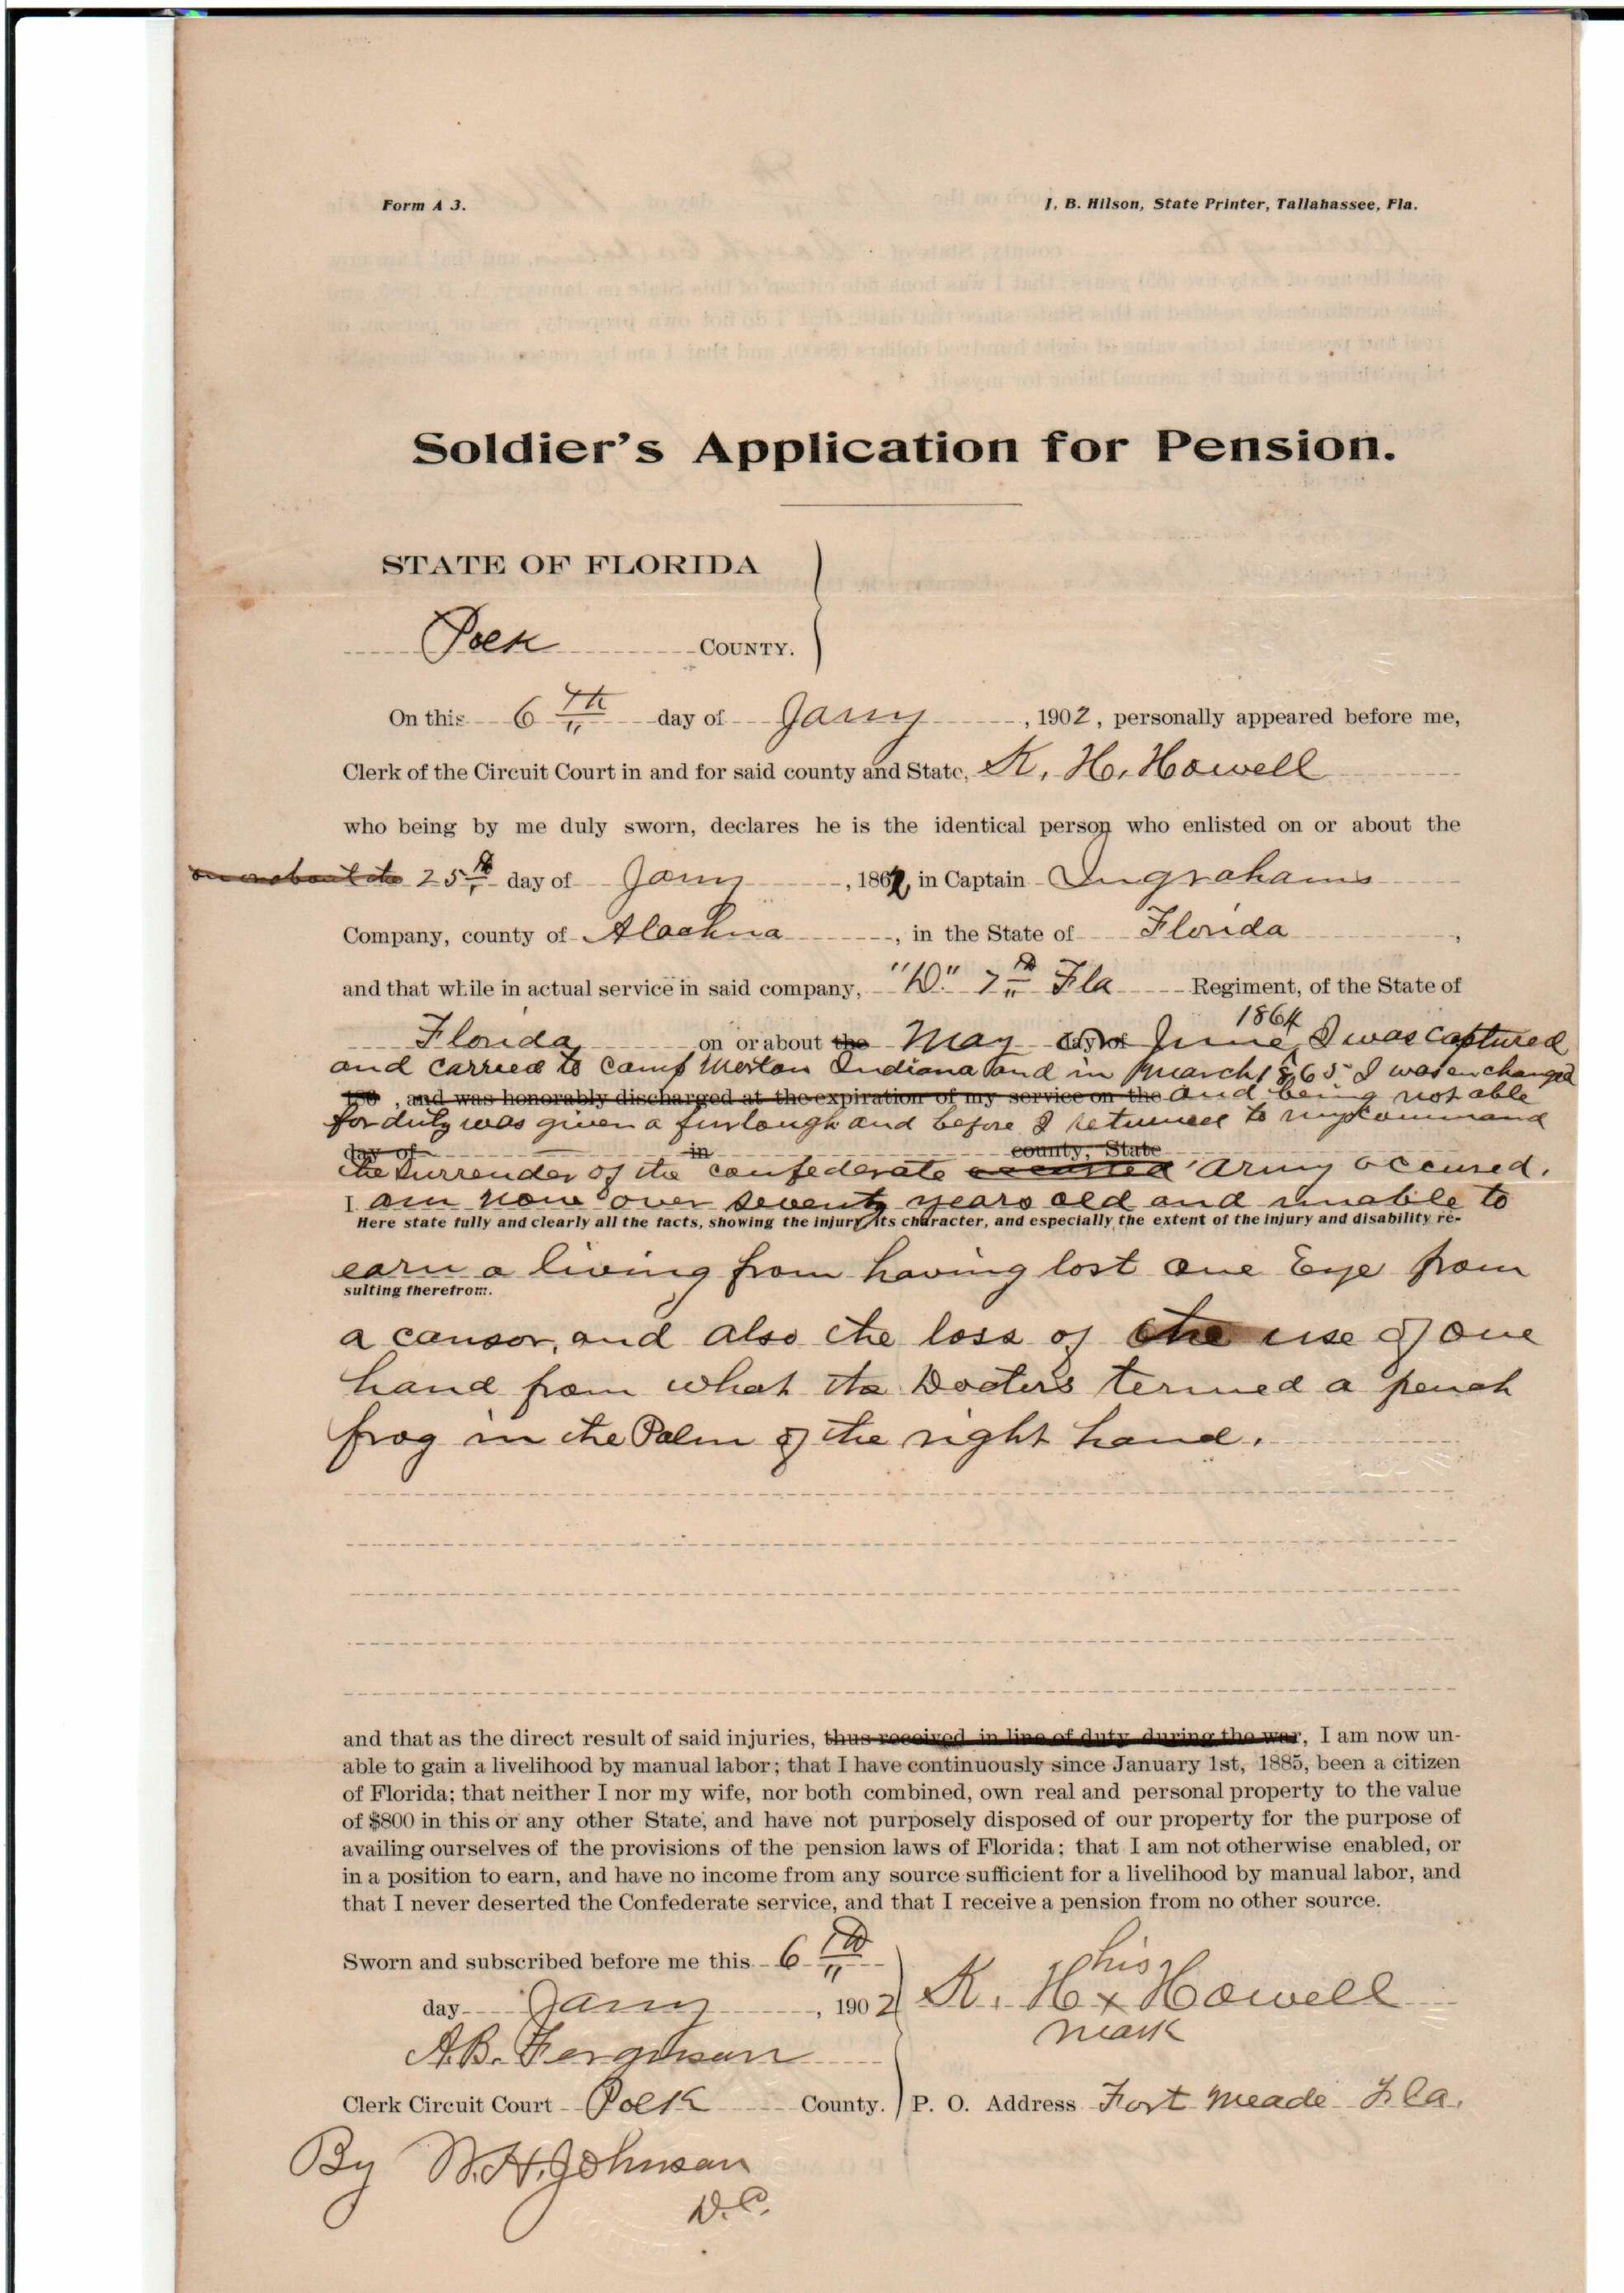 Form A 3.
I. B. Hilson, State Printer, Tallahassee, Fla.
Soldier's Application for Pension.
STATE OF FLORIDA
Polk COUNTY.
On this 6th day of Jany, 1902, personally appeared before me,
Clerk of the Circuit Court in and for said county and State, K. H. Howell
who being by me duly sworn, declares he is the identical person who enlisted on or about the
on or about the 25th day of Jany, 1862, in Captain Ingrahams
Company, county of Alachua, in the State of Florida,
and that while in actual service in said company, "D." 7th Fla Regiment, of the State of
1864
Florida on or about the May day of June, I was captured
and carried to camp Morton Indiana and in March 1865 I was exchanged
186 , and was honorably discharged at the expiration of my service on the and being not able
for duty was given a furlough and before I returned to my command
day of in county, State
the surrender of the confederate army occured.
I am now over seventy years old and unable to
Here state fully and clearly all the facts, showing the injury, its character, and especially the extent of the injury and disability re-
earn a living from having lost one Eye from
sulting therefrom.
a cansor, and also the loss of the use of one
hand from what the Docters termed a
frog in the Palm of the right hand.
and that as the direct result of said injuries, thus received in line of duty during the war, I am now un-
able to gain a livelihood by manual labor; that I have continuously since January 1st, 1885, been a citizen
of Florida; that neither I nor my wife, nor both combined, own real and personal property to the value
of $800 in this or any other State, and have not purposely disposed of our property for the purpose of
availing ourselves of the provisions of the pension laws of Florida; that I am not otherwise enabled, or
in a position to earn, and have no income from any source sufficient for a livelihood by manual labor, and
that I never deserted the Confederate service, and that I receive a pension from no other source.
Sworn and subscribed before me this 6th
day Jany, 1902
his
K. H x Howell
mark
A.B. Ferguson
Clerk Circuit Court Polk County.
P. O. Address Fort Meade Fla.
By W.H. Johnson
D.C.